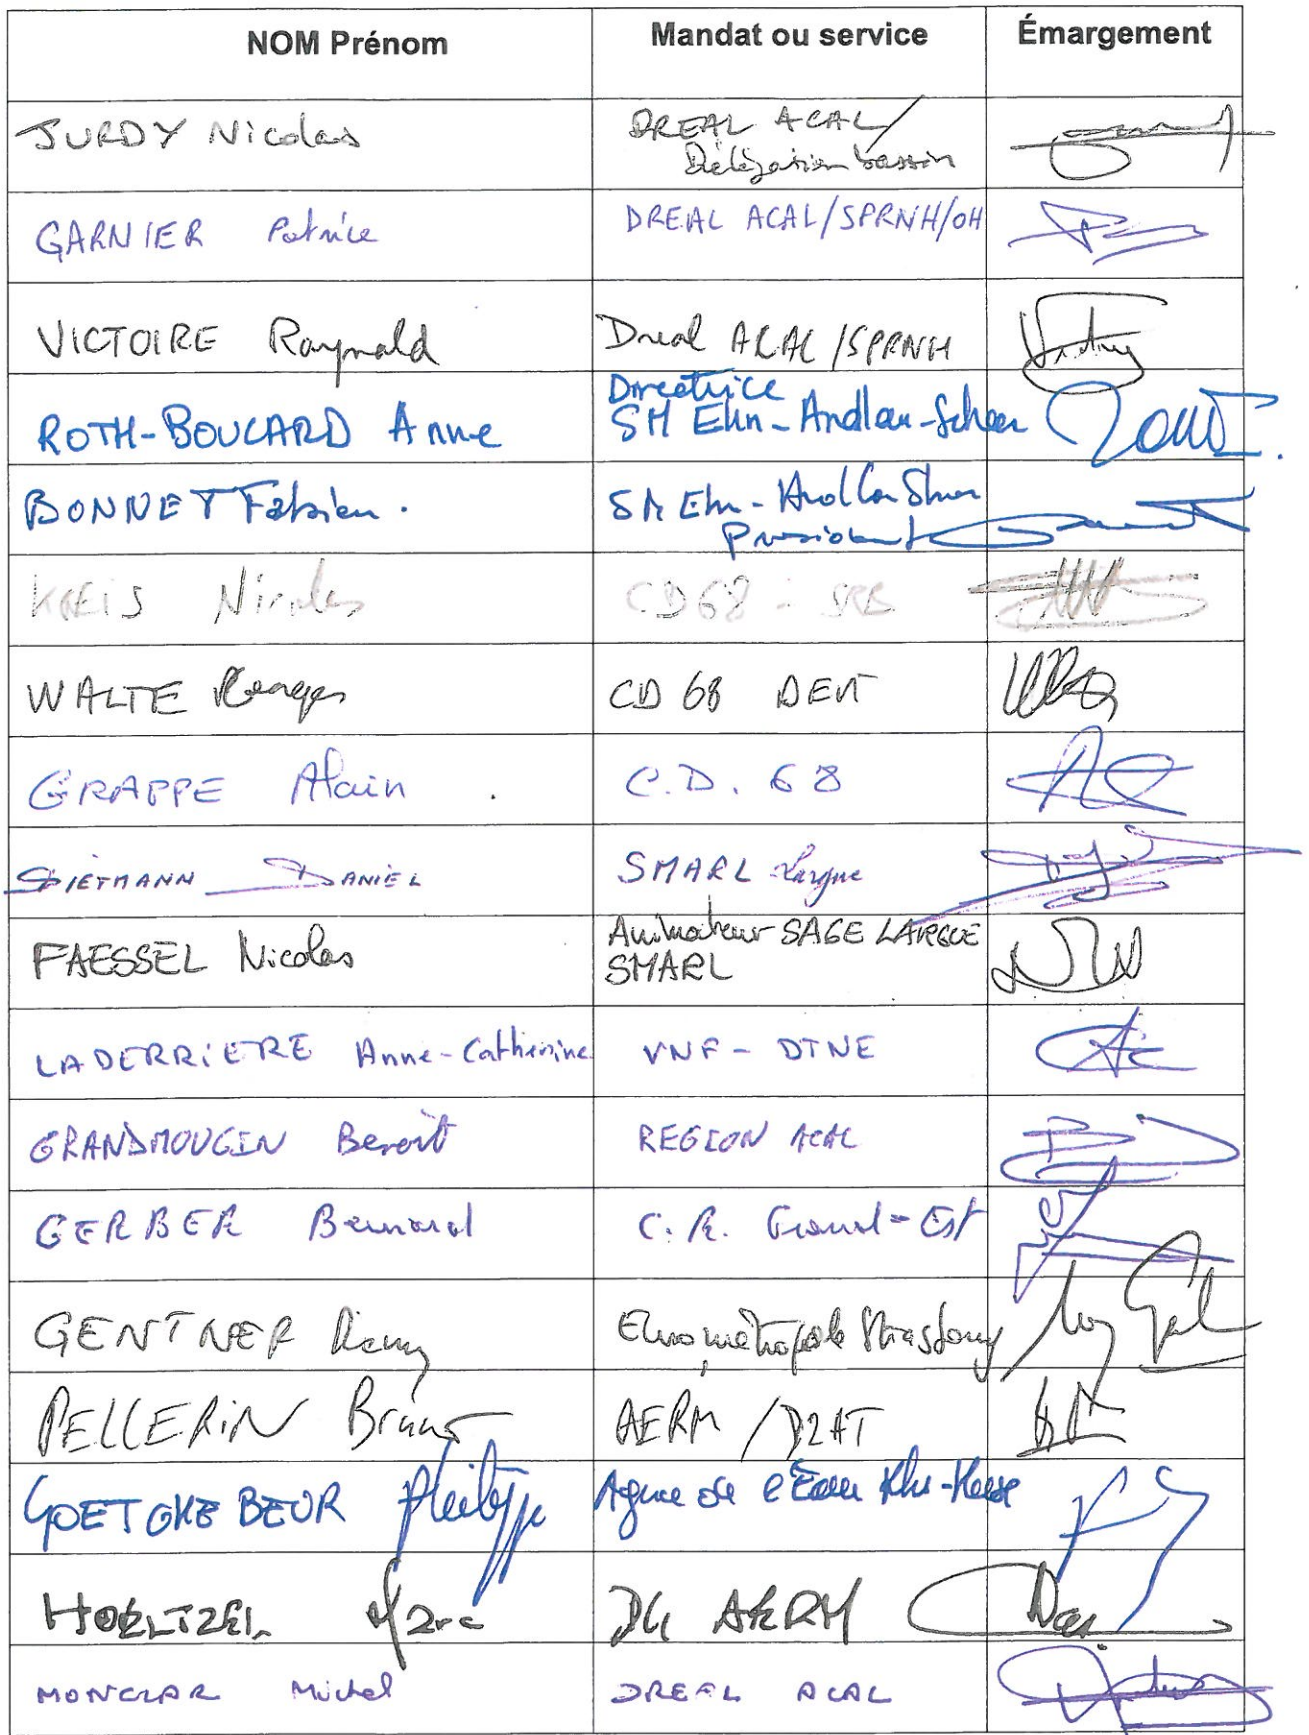 NOM Prénom Mandat ou service Émargement
JURDY Nicolas DREAL ACAL/
Délégation bassin
GARNIER Patrice DREAL ACAL/SPRNH/OH
VICTOIRE Raynald Dreal ACAL/SPRNH
Directrice
ROTH-BOUCARD Anne SM Ehn-Andlau-Scheer
BONNET Fabien. SM Ehn-Andlau Scheer
President
KREIS Nicolas CD68 -
WALTE CD 68 DEVT
GRAPPE Alain C.D. 68
DIETMANN DANIEL SMARL Largue
FAESSEL Nicolas Animateur SAGE LARGUE
SMARL
LADERRIERE Anne-Catherine VNF - DTNE
GRANDMOUGIN Benoît REGION ACAL
GERBER Bernard C.R. Grand-Est
GENTNER Remy Eurométropole Strasbourg
PELLERIN Bruno AERM /D2AT
GOETGHEBEUR Philippe Agence de l'Eau Rhin-Meuse
HOELTZEL Marc DG AERM
MONCLAR Michel DREAL ACAL